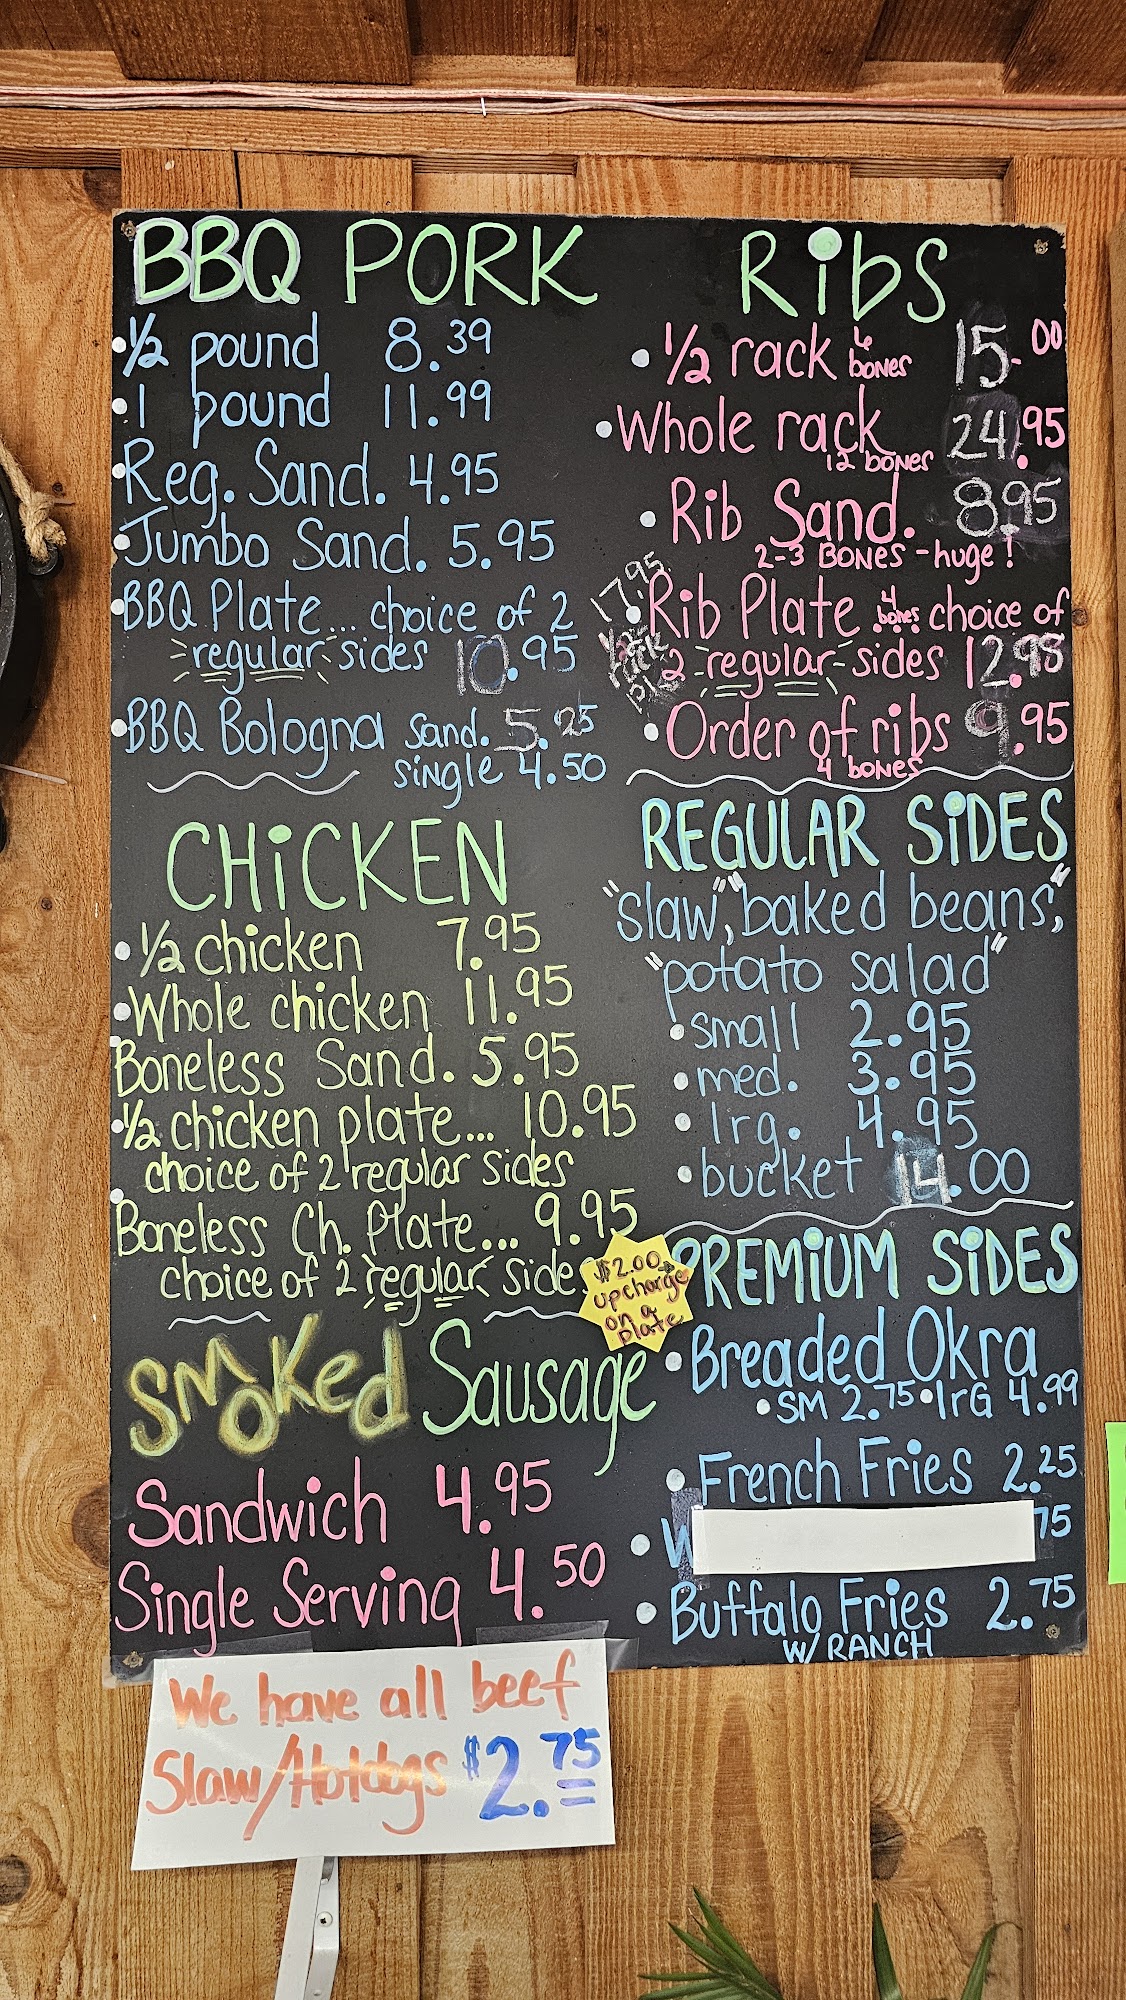 BBQ PORK
1/2 pound 8.39
1 pound 11.99
Reg. Sand. 4.95
Jumbo Sand. 5.95
BBQ Plate... choice of 2
regular sides 10.95
BBQ Bologna Sand. 5.25
single 4.50
CHiCKEN
1/2 chicken 7.95
Whole chicken 11.95
Boneless Sand. 5.95
1/2 chicken plate... 10.95
choice of 2 regular sides
Boneless Ch. Plate... 9.95
choice of 2 regular side
SMOKed Sausage
Sandwich 4.95
Single Serving 4.50
Ribs
1/2 rack 6 bones 15.00
Whole rack 24.95
12 bones
Rib Sand. 8.95
2-3 BONES - huge!
17.95
1/2 rack
Rib Plate 4 bones choice of
2 -regular- sides 12.95
Order of ribs 9.95
4 bones
REGULAR SiDES
"slaw", "baked beans",
"potato salad"
small 2.95
med. 3.95
lrg. 4.95
bucket 14.00
PREMiUM SiDES
$2.00
upcharge
on a
plate
Breaded Okra
SM 2.75 lrG 4.99
French Fries 2.25
W 75
Buffalo Fries 2.75
W/ RANCH
We have all beef
Slaw/Hotdogs $2.75